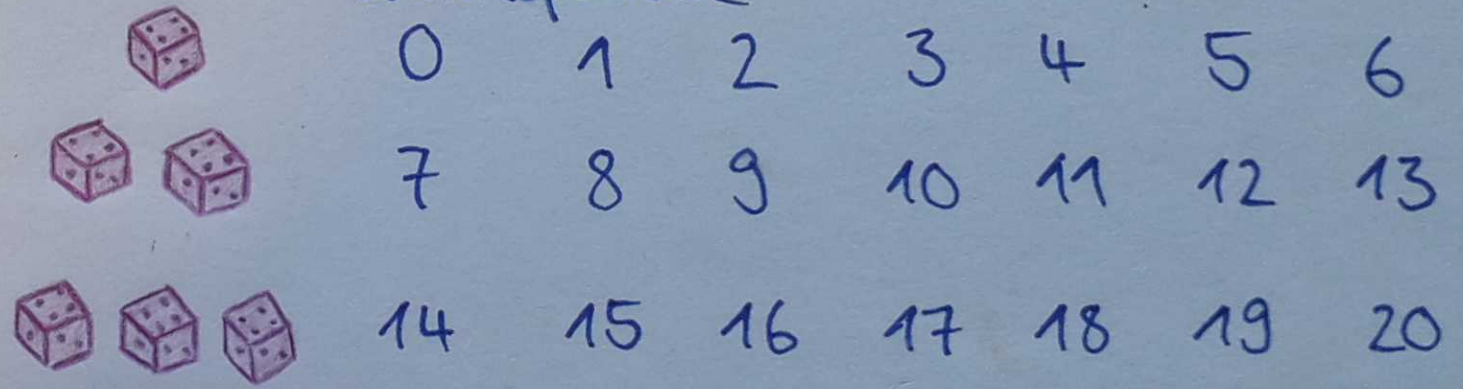 0 1 2 3 4 5 6
7 8 9 10 11 12 13
14 15 16 17 18 19 20